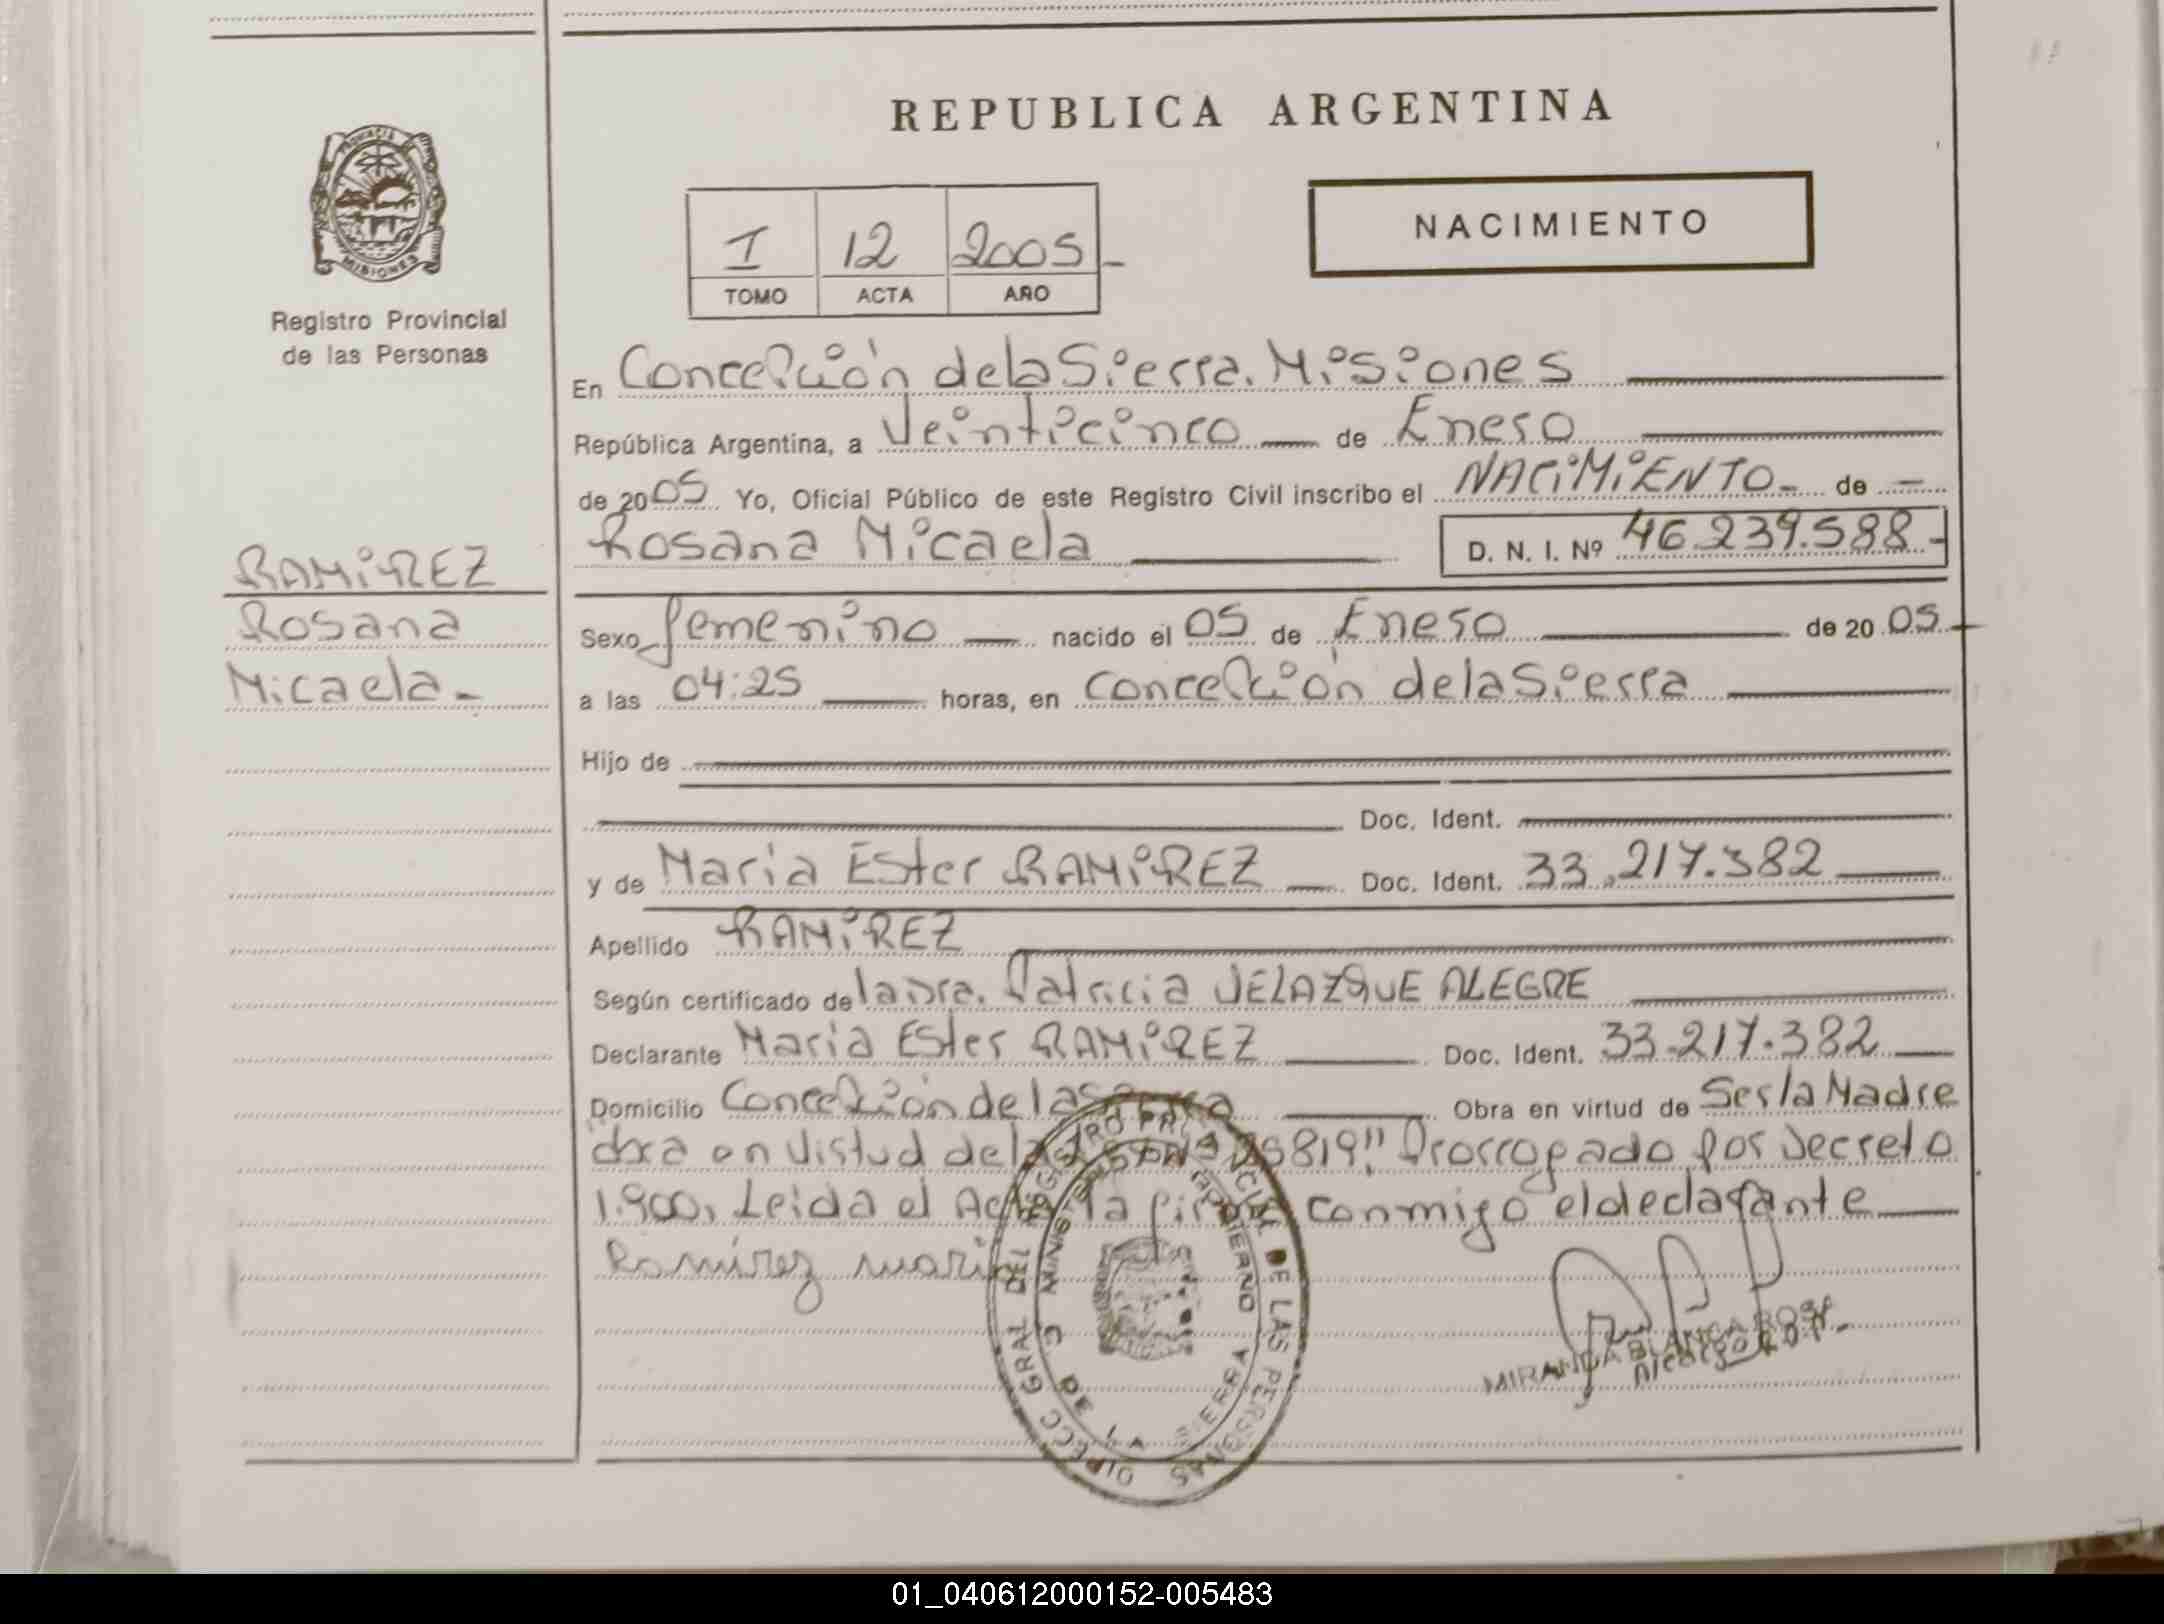 REPUBLICA ARGENTINA
PROVINCIA
MISIONES
Registro Provincial
de las Personas
I 12 2005-
TOMO ACTA AÑO
NACIMIENTO
En Concepción de la Sierra. Misiones
República Argentina, a Veinticinco de Enero
de 2005 Yo, Oficial Público de este Registro Civil inscribo el NACiMiENTO- de -
Rosana Micaela D. N. I. Nº 46.239.588-
RAMiREZ
Rosana
Micaela-
Sexo femenino nacido el 05 de Enero de 20 05-
a las 04:25 horas, en Concepción de la Sierra
Hijo de
Doc. Ident.
y de Maria Ester RAMiREZ Doc. Ident. 33.217.382
Apellido RAMiREZ
Según certificado de la Dra. Patricia VELAZQUE ALEGRE
Declarante Maria Ester RAMiREZ Doc. Ident. 33.217.382
Domicilio Concepción de la Sierra Obra en virtud de Ser la Madre
obra en virtud de la 25819" Prorrogado por Decreto
1.900, Leida el Acta la firma conmigo el declarante
Ramírez maria
DIRECC GRAL DEL REGISTRO PROVINCIAL DE LAS PERSONAS
MINISTERIO DE GOBIERNO
C DE LA SIERRA
MIRANDA BLANCA ROSA
01_040612000152-005483